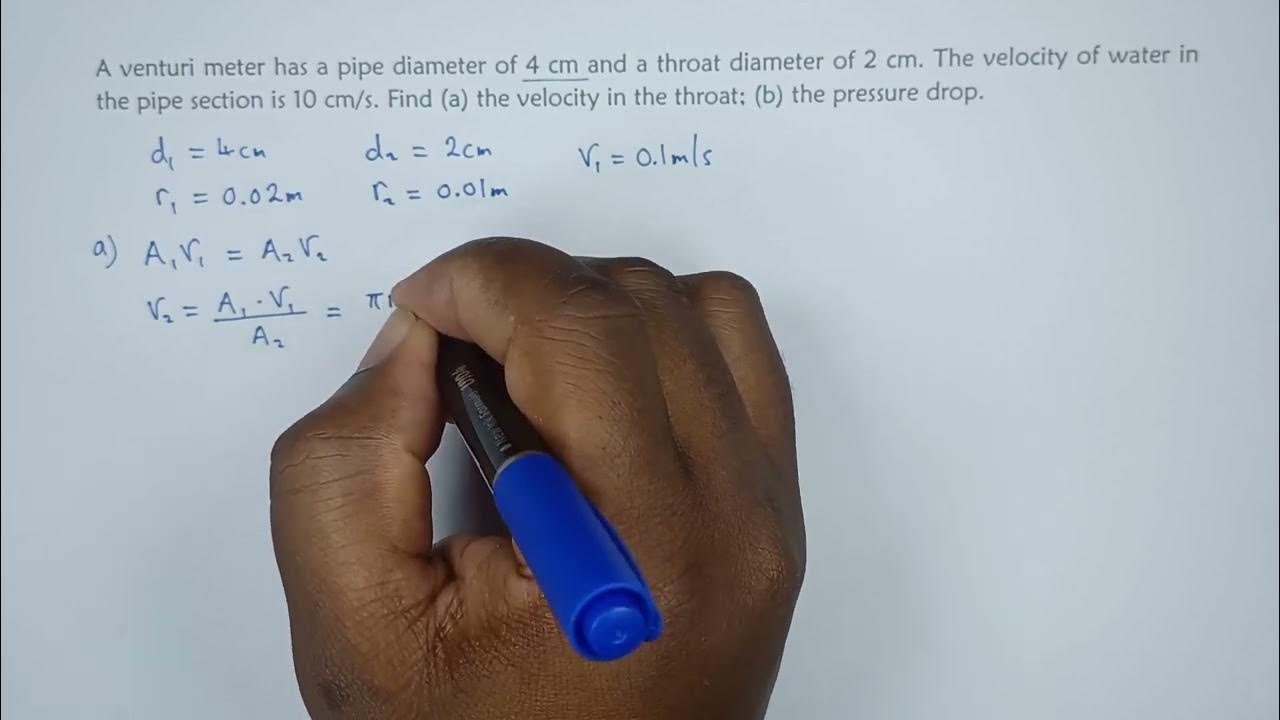 A venturi meter has a pipe diameter of 4 cm and a throat diameter of 2 cm. The velocity of water in
the pipe section is 10 cm/s. Find (a) the velocity in the throat; (b) the pressure drop.
d₁ = 4cm d₂ = 2cm V₁ = 0.1m/s
r₁ = 0.02m r₂ = 0.01m
a) A₁V₁ = A₂V₂
V₂ = A₁·V₁/A₂ = π